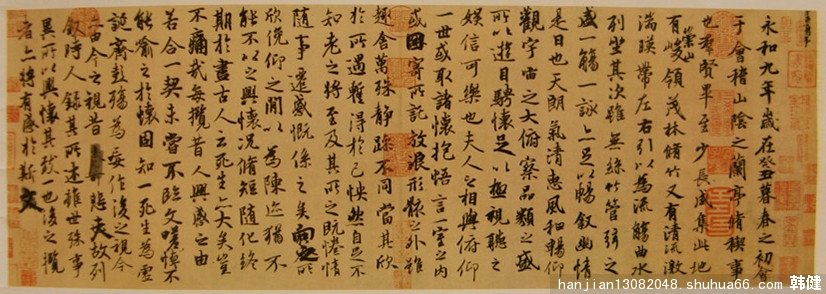 永和九年歲在癸丑暮春之初會
于會稽山陰之蘭亭脩稧事
也羣賢畢至少長咸集此地
有崇山峻領茂林脩竹又有清流激
湍暎帶左右引以為流觴曲水
列坐其次雖無絲竹管弦之
盛一觴一詠亦足以暢敘幽情
是日也天朗氣清惠風和暢仰
觀宇宙之大俯察品類之盛
所以遊目騁懷足以極視聽之
娛信可樂也夫人之相與俯仰
一世或取諸懷抱悟言一室之內
或因寄所託放浪形骸之外雖
趣舍萬殊靜躁不同當其欣
於所遇蹔得於己怏然自足不
知老之將至及其所之既惓情
隨事遷感慨係之矣向之所
欣俛仰之閒以為陳迹猶不
能不以之興懷況脩短隨化終
期於盡古人云死生亦大矣豈
不痛哉每攬昔人興感之由
若合一契未嘗不臨文嗟悼不
能喻之於懷固知一死生為虛
誕齊彭殤為妄作後之視今
亦由今之視昔悲夫故列
敘時人錄其所述雖世殊事
異所以興懷其致一也後之攬
者亦將有感於斯文
hanjian13082048.shuhua66.com 韩健